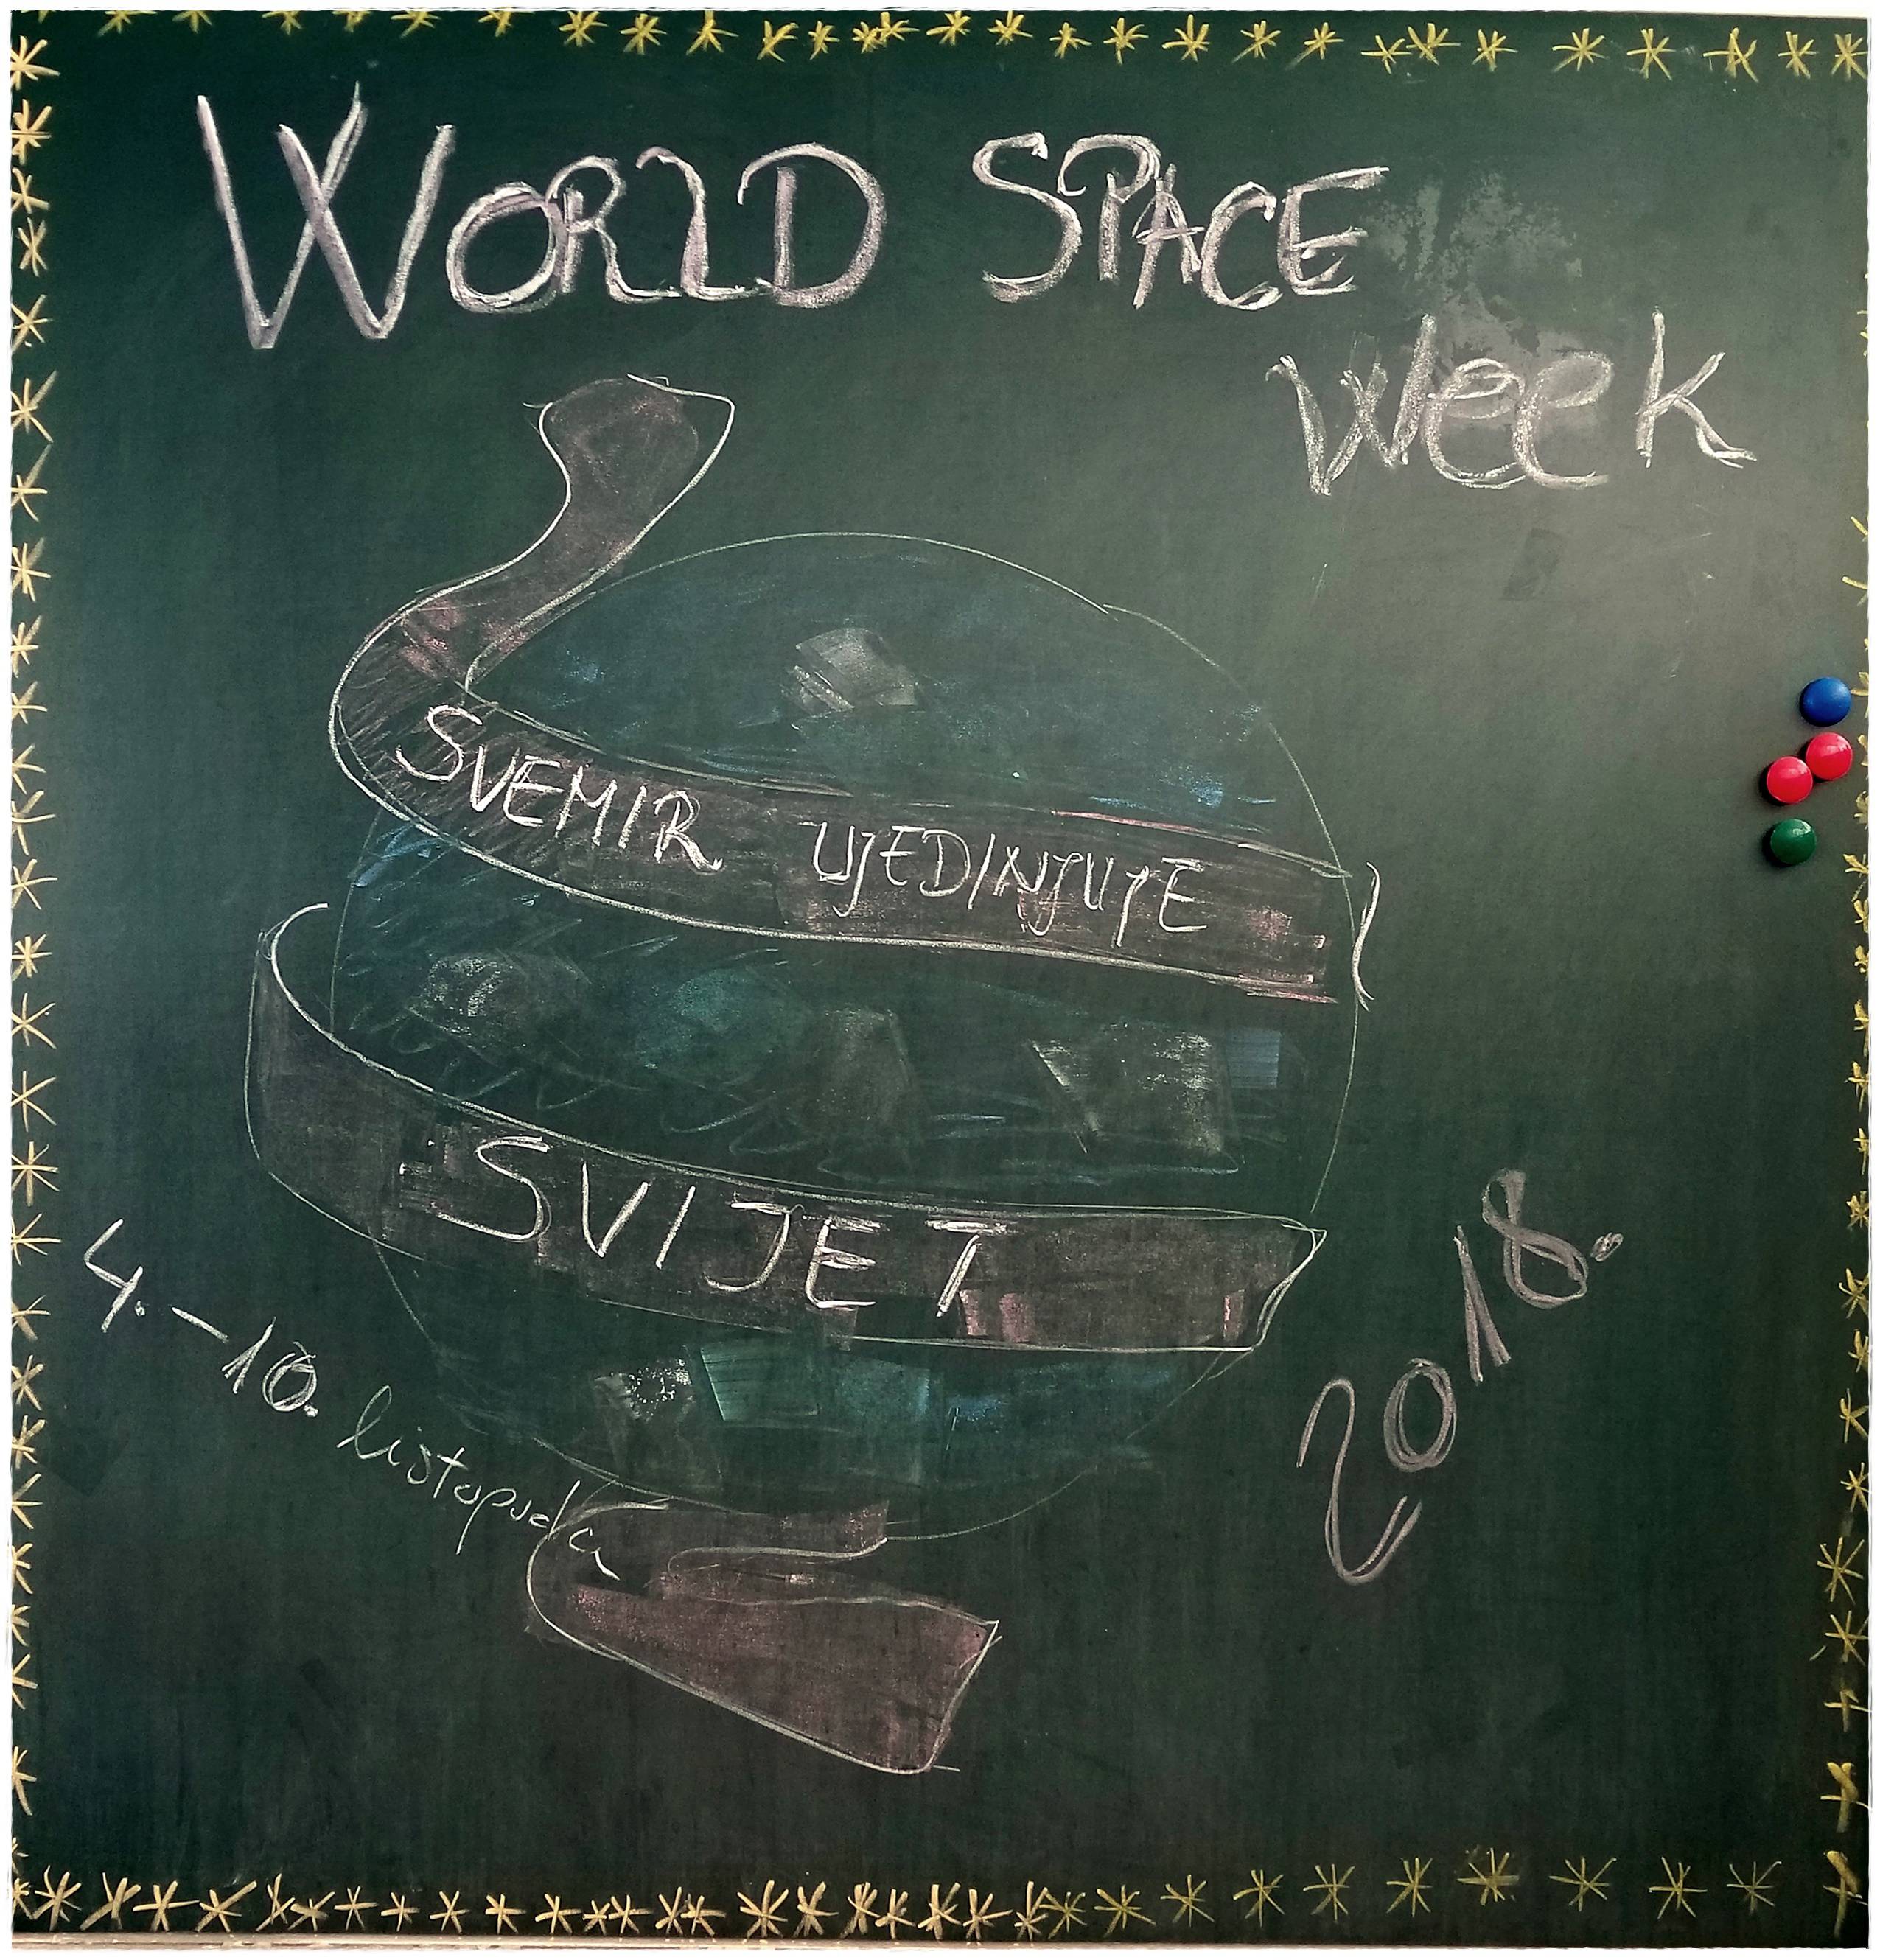 WORLD SPACE
Week
SVEMIR UJEDINJUJE
SVIJET
4. – 10. listopada
2018.